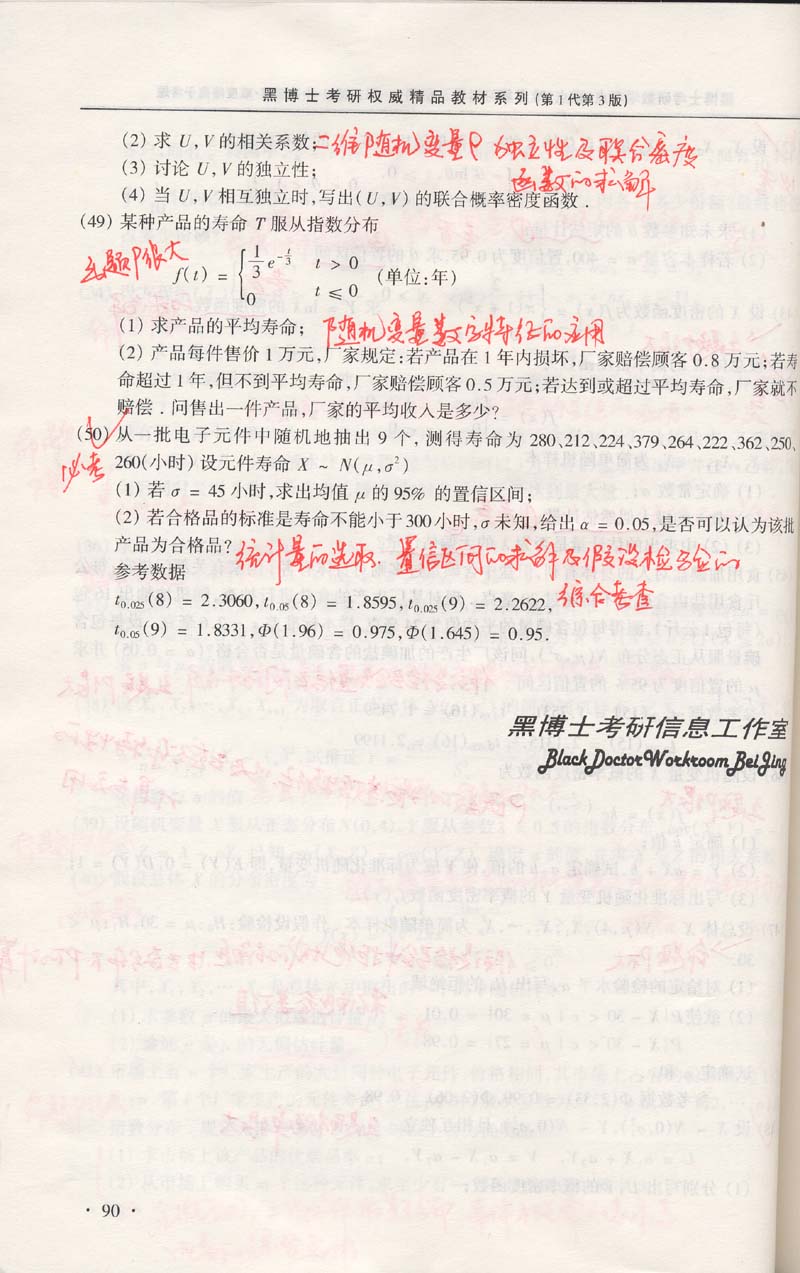 黑博士考研权威精品教材系列(第1代第3版)
(2) 求 U,V 的相关系数; 二维随机变量ρ 独立性及联合密度
(3) 讨论 U,V 的独立性; 函数的求解
(4) 当 U,V 相互独立时,写出(U,V) 的联合概率密度函数 .
(49) 某种产品的寿命 T 服从指数分布
出题P很大
f(t) = { 1/3 e^{-t/3} t > 0
0 t ≤ 0 (单位:年)
(1) 求产品的平均寿命; 随机变量数字特征的应用
(2) 产品每件售价 1 万元,厂家规定:若产品在 1 年内损坏,厂家赔偿顾客 0.8 万元;若寿
命超过 1 年,但不到平均寿命,厂家赔偿顾客 0.5 万元;若达到或超过平均寿命,厂家就不
赔偿 . 问售出一件产品,厂家的平均收入是多少?
(50) 从一批电子元件中随机地抽出 9 个, 测得寿命为 280、212、224、379、264、222、362、250、
必考 260(小时) 设元件寿命 X ~ N(μ,σ²)
(1) 若 σ = 45 小时,求出均值 μ 的 95% 的置信区间;
(2) 若合格品的标准是寿命不能小于 300 小时,σ 未知,给出 α = 0.05,是否可以认为该批
产品为合格品? 统计量的选取. 置信区间的求解及假设检验的
参考数据 综合考查
t₀.₀₂₅(8) = 2.3060, t₀.₀₅(8) = 1.8595, t₀.₀₂₅(9) = 2.2622,
t₀.₀₅(9) = 1.8331, Φ(1.96) = 0.975, Φ(1.645) = 0.95.
黑博士考研信息工作室
Black Doctor Workroom BeiJing
· 90 ·